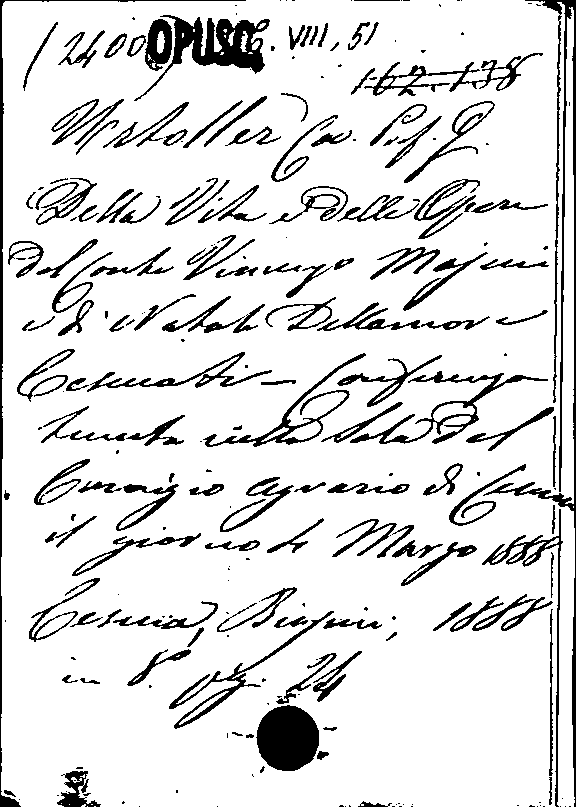 (2400) OPUSC. C. VIII, 51
162.138
Urtoller Cav. Prof. G.
Della Vita e delle Opere
del Conte Vincenzo Masini
e di Natale Dellamore
Cesenati - Conferenza
tenuta nella Sala del
Comizio agrario di Cesena
il giorno 4 Marzo 1888
Cesena, Biasini, 1888
in 8° pag. 24